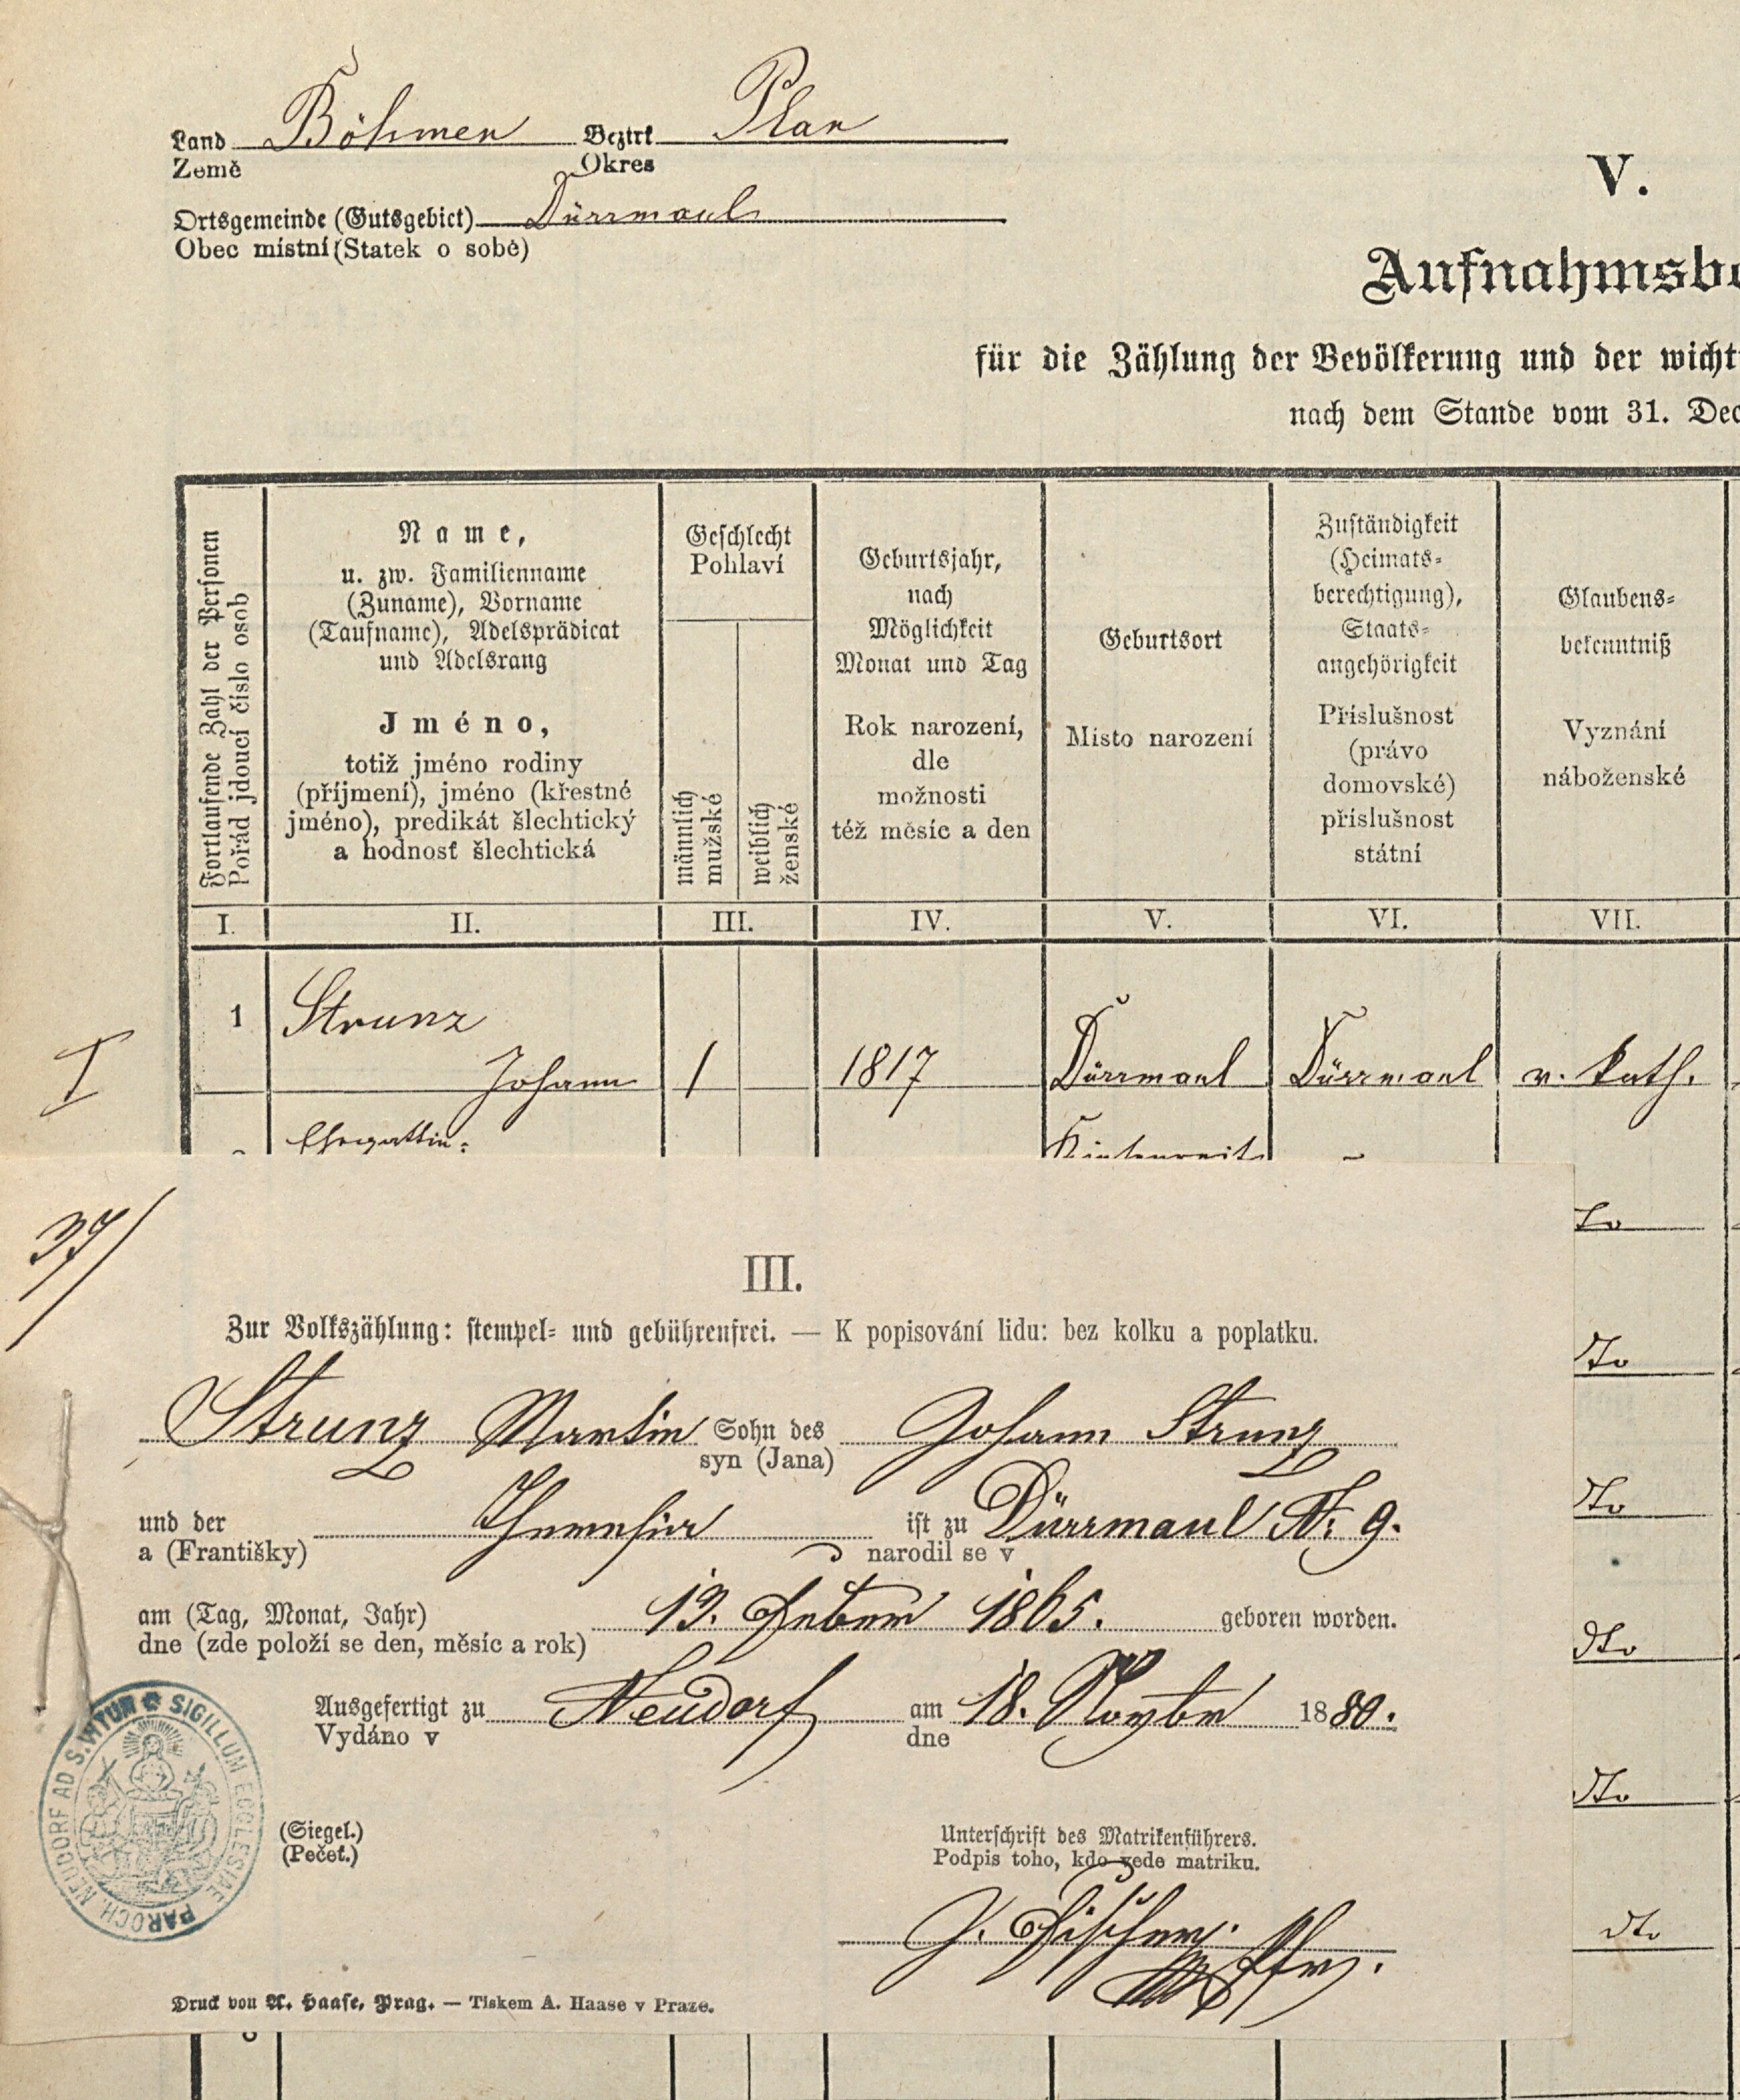 Land Böhmen Bezirk Plan
Země Okres
Ortsgemeinde (Gutsgebiet) Dürrmaul
Obec místní (Statek o sobě)
V.
Aufnahmsbo
für die Zählung der Bevölkerung und der wicht
nach dem Stande vom 31. Dec
Fortlaufende Zahl der Personen
Pořád jdoucí číslo osob
Name,
u. zw. Familienname
(Zuname), Vorname
(Taufname), Adelsprädicat
und Adelsrang
Jméno,
totiž jméno rodiny
(příjmení), jméno (křestné
jméno), predikát šlechtický
a hodnosť šlechtická
Geschlecht
Pohlaví
männlich
mužské
weiblich
ženské
Geburtsjahr,
nach
Möglichkeit
Monat und Tag
Rok narození,
dle
možnosti
též měsíc a den
Geburtsort
Místo narození
Zuständigkeit
(Heimats-
berechtigung),
Staats-
angehörigkeit
Příslušnost
(právo
domovské)
příslušnost
státní
Glaubens-
bekenntniß
Vyznání
náboženské
I. II. III. IV. V. VI. VII.
1 Strunz
I Johann 1 1817 Dürrmaul Dürrmaul r. kath.
Ehegattin:
37/
III.
Zur Volkszählung: stempel- und gebührenfrei. — K popisování lidu: bez kolku a poplatku.
Strunz Martin Sohn des Johann Strunz
syn (Jana)
und der Theresia ist zu Dürrmaul N. 9.
a (Františky) narodil se v
am (Tag, Monat, Jahr) 12. Feber 1865. geboren worden.
dne (zde položí se den, měsíc a rok)
Ausgefertigt zu Neudorf am 18. Novbr 1880.
Vydáno v dne
SIGILLUM ECCLESIAE PAROCH. NEUDORF AD S. VITUM
(Siegel.)
(Pečeť.)
Unterschrift des Matrikenführers.
Podpis toho, kdo vede matriku.
J. Fischer
Pfr.
Druck von A. Haase, Prag. — Tiskem A. Haase v Praze.
dto
dto
dto
dto
dto
dto